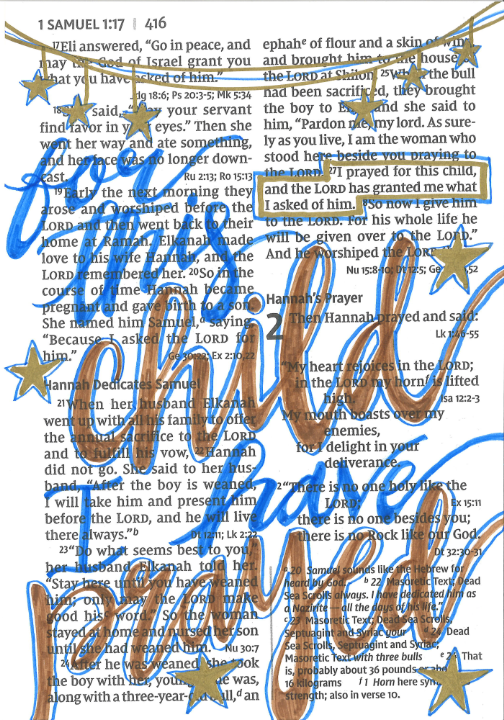 1 SAMUEL 1:17 | 416
17Eli answered, “Go in peace, and
may the God of Israel grant you
what you have asked of him.”
Jdg 18:6; Ps 20:3-5; Mk 5:34
18 said, “May your servant
find favor in your eyes.” Then she
went her way and ate something,
and her face was no longer down-
cast.
Ru 2:13; Ro 15:13
19Early the next morning they
arose and worshiped before the
LORD and then went back to their
home at Ramah. Elkanah made
love to his wife Hannah, and the
LORD remembered her. 20So in the
course of time Hannah became
pregnant and gave birth to a son.
She named him Samuel, saying,
“Because I asked the LORD for
him.”
Ge 30:22; Ex 2:10,22
Hannah Dedicates Samuel
21When her husband Elkanah
went up with all his family to offer
the annual sacrifice to the LORD
and to fulfill his vow, 22Hannah
did not go. She said to her hus-
band, “After the boy is weaned,
I will take him and present him
before the LORD, and he will live
there always.”b
Dt 12:11; Lk 2:22
23“Do what seems best to you,”
her husband Elkanah told her.
“Stay here until you have weaned
him; only may the LORD make
good his word.” So the woman
stayed at home and nursed her son
until she had weaned him.
Nu 30:7
24After he was weaned, she took
the boy with her, young he was,
along with a three-year-old bull,d an
ephahe of flour and a skin of wine,
and brought him to the house
the LORD at Shiloh. 25When the bull
had been sacrificed, they brought
the boy to and she said to
him, “Pardon me, my lord. As sure-
ly as you live, I am the woman who
stood here beside you praying to
the LORD. 27I prayed for this child,
and the LORD has granted me what
I asked of him. 28So now I give him
to the LORD. For his whole life he
will be given over to the LORD.”
And he worshiped the LORD
Nu 15:8-10; Dt 12:5; Ge 52
Hannah’s Prayer
2 Then Hannah prayed and said:
Lk 1:46-55
“My heart rejoices in the LORD;
in the LORD my hornf is lifted
high.
Isa 12:2-3
My mouth boasts over my
enemies,
for I delight in your
deliverance.
2“There is no one holy like the
LORD;
Ex 15:11
there is no one besides you;
there is no Rock like our God.
Dt 32:30-31
a 20 Samuel sounds like the Hebrew for
heard by God. b 22 Masoretic Text; Dead
Sea Scrolls always. I have dedicated him as
a Nazirite — all the days of his life.”
c 23 Masoretic Text; Dead Sea Scrolls,
Septuagint and Syriac your d 24 Dead
Sea Scrolls, Septuagint and Syriac;
Masoretic Text with three bulls e 24 That
is, probably about 36 pounds or about
16 kilograms f 1 Horn here symbolizes
strength; also in verse 10.
for
this
child
I have
prayed